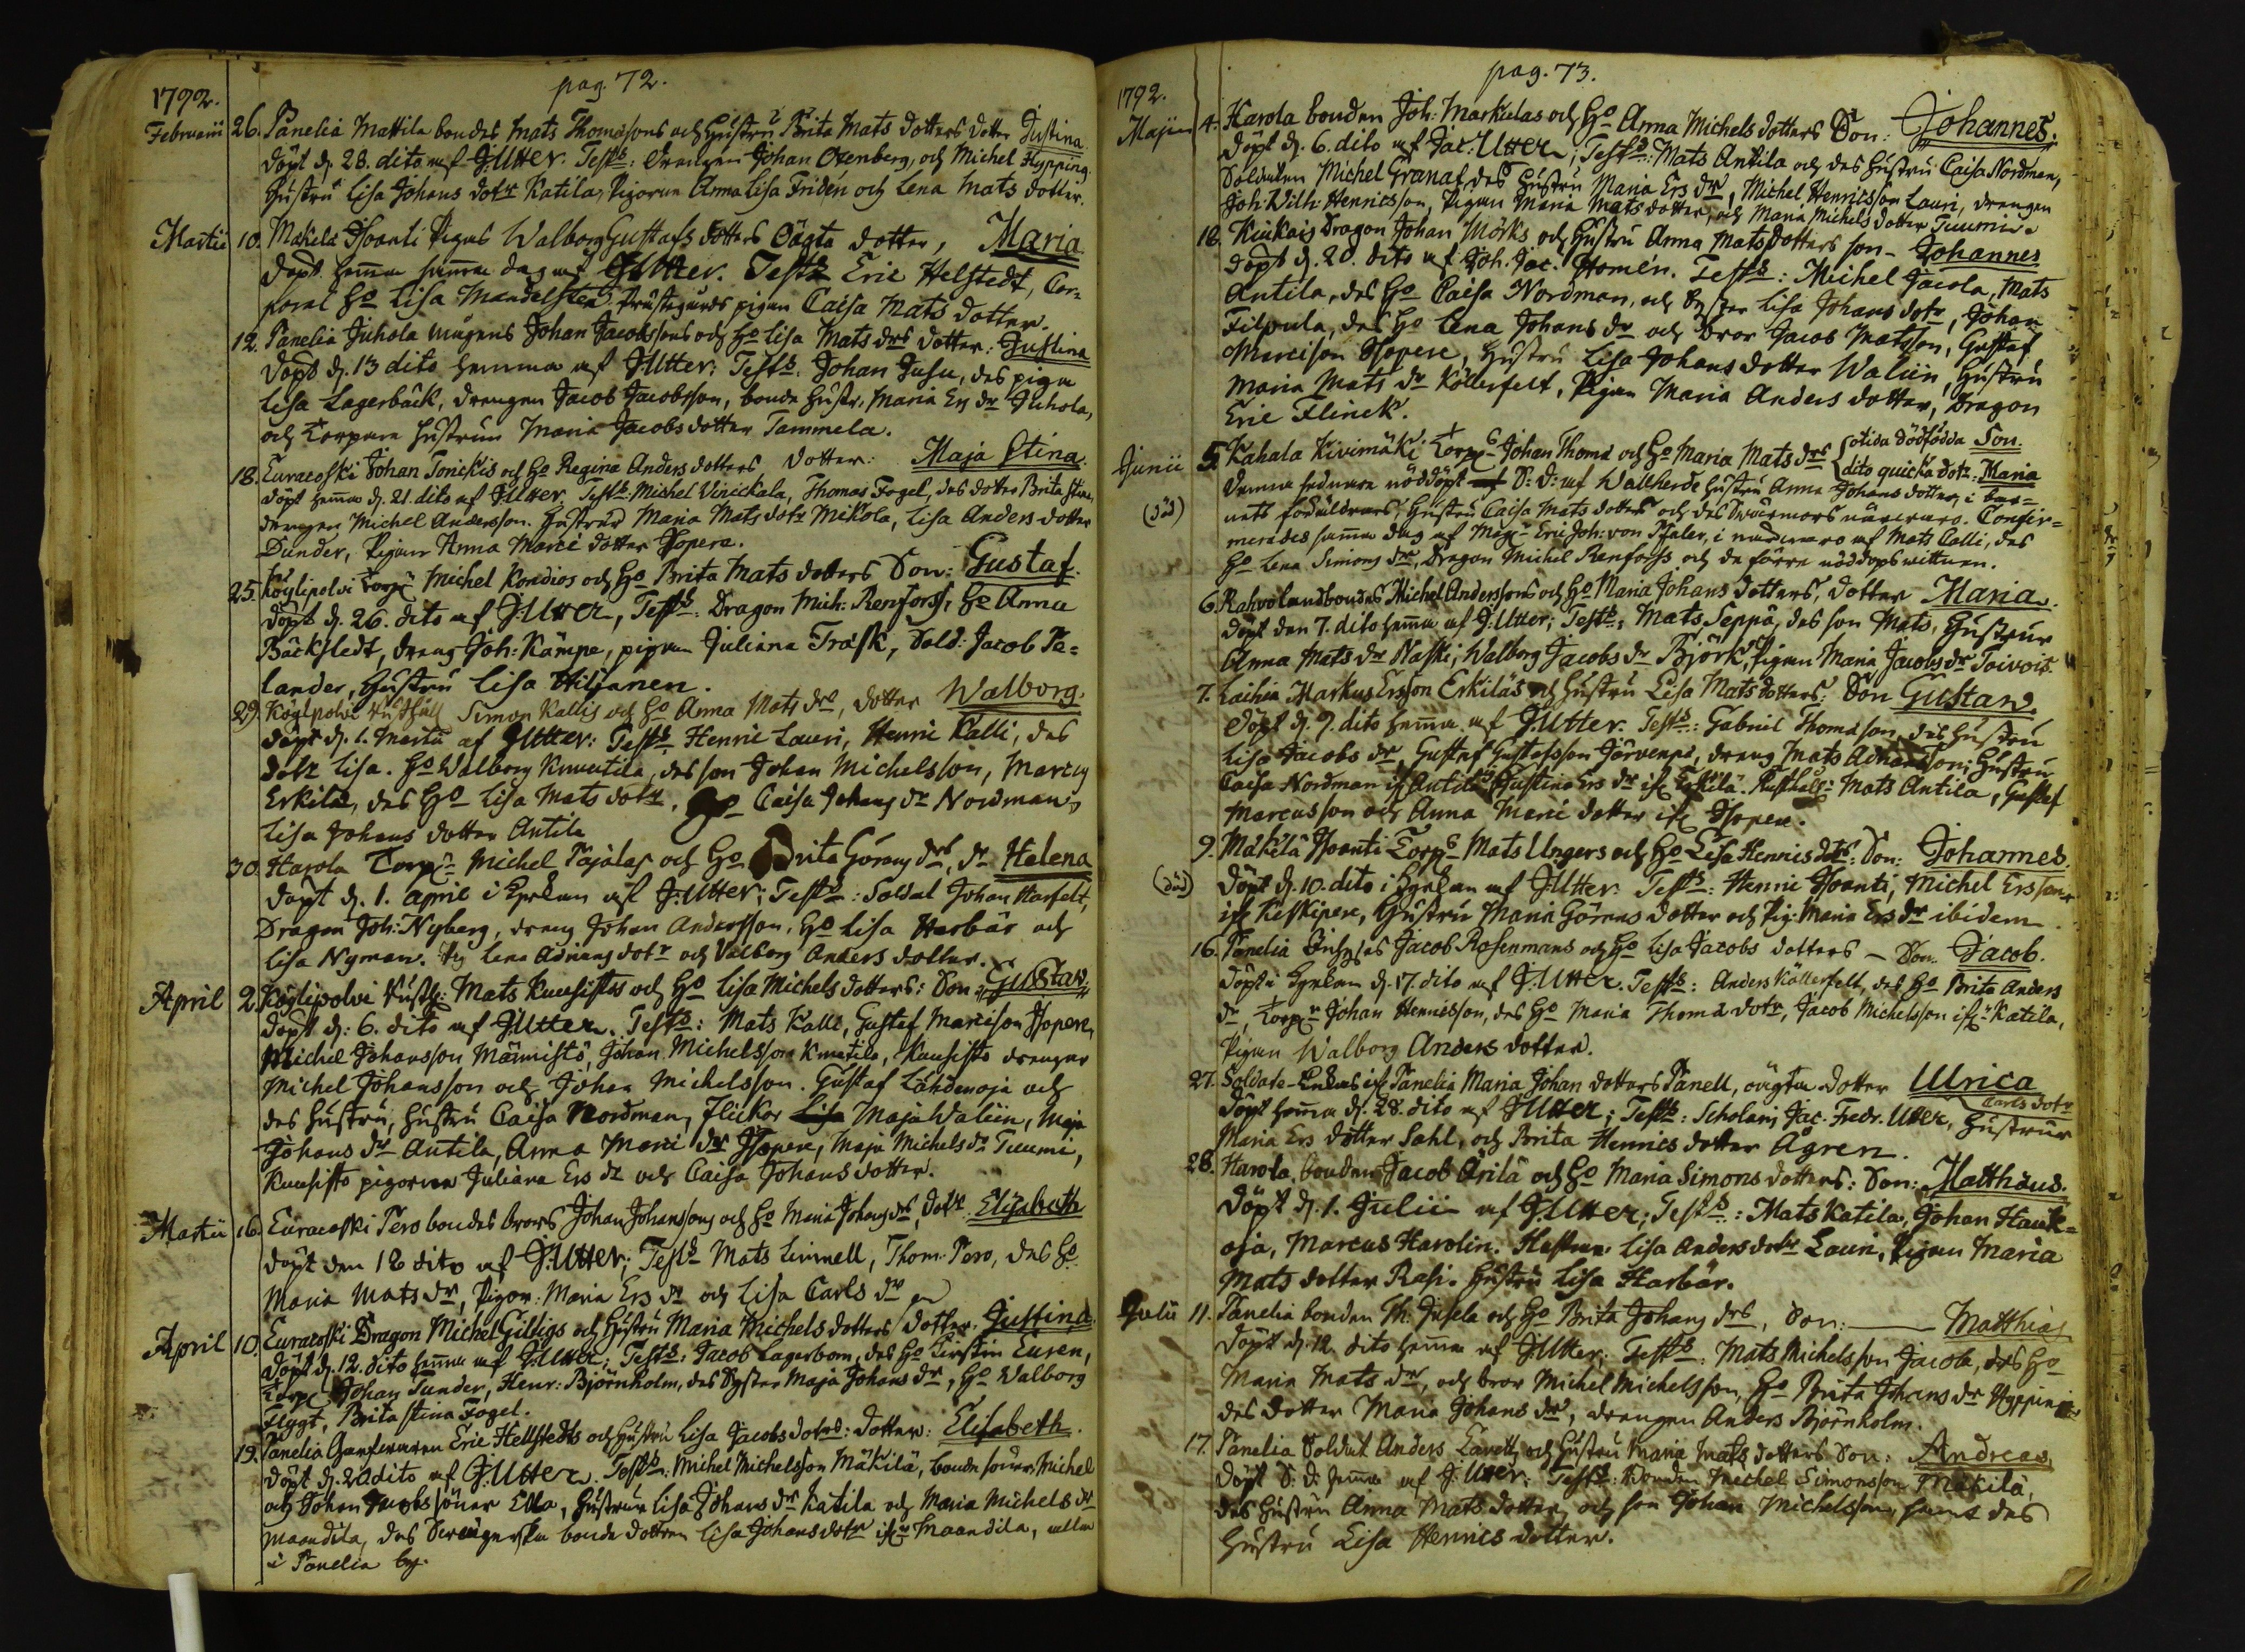 pag. 72.
1792.
Februarii 26. Panelia Mattila bondes Mats Thomæsons och Hustru Brita Mats dotters dotter Justina
döpt d. 28. dito af J:Utter. Test: drengen Johan Oxenberg, och Michel Hypping.
Hustru Lisa Johans dotr Katila, Pigorna Anna Lisa Fridén och Lena Mats dotter.
Martii 10. Mäkelä Isoanti Pigas Walborg Gustafs dotters Oägta dotter, Maria
döpt hemma samma dag af J:Utter. Test: Eric Helstedt, Cor-
poral Ho Lisa Mandelsten Prästegårds pigan Caisa Mats dotter.
12. Panelia Juhola mågens Johan Jacobssons och Ho Lisa Mats drs dotter: Justina
döpt d. 13 dito hemma af J:Utter; Test: Johan Jusu, des piga
Lisa Lagerbäck, drengen Jacob Jacobsson, bonde Hustr. Maria Ers dr Juhola,
och Torpare Hustrun Maria Jacobs dotter Tammela.
18. Euracoski Johan Tonickis och Ho Regina Anders dotters dotter: Maja Stina
döpt hemma d. 21. dito af J:Utter, Test: Michel Vinickala, Thomas Fogel, des dotter Brita Stina,
drengen Michel Andersson. Hustrur Maria Mats dotr Mikola, Lisa Anders dotter
Dunder, Pigan Anna Marci dotter Isopere.
25. Köylipolvi Torp: Michel Kondios och Ho Brita Mats dotters Son: Gustaf.
döpt d. 26. dito af J:Utter, Test: Dragon Mich: Renforss, Ho Anna
Bäckstedt, dreng Joh: Kämpe, pigan Juliana Träsk, Sold: Jacob Pa-
lander, Hustru Lisa Hiljanen.
29. Köylpolvi Rusthåll Simon Kallis och Ho Anna Mats drs, dotter Walborg.
döpt d. 1. Martii af J:Utter: Test: Henric Lauri, Henric Kalli, des
dotr Lisa. Ho Walborg Knuutila, des son Johan Michelsson, Marcus
Erkilä, des Ho Lisa Mats dotr. Ho Caisa Johans dr Nordman,
Lisa Johans dotter Antila
30. Harola Torp: Michel Päjälas och Ho Brita Görans drs, dr Helena
döpt d. 1. April i Kyrkan af J:Utter; Test: Soldat Johan Harfelt,
Dragon Joh: Nyberg, dreng Johan Andersson, Ho Lisa Harbär och
Lisa Nyman. Pig Lena Adrians dotr och Valborg Anders dotter.
April 2. Köylipolvi Rusth: Mats Kuusistos och Ho Lisa Michels dotters: Son Gustav.
döpt d: 6. dito af J:Utter. Test: Mats Kalli, Gustaf Marcison Isopere,
Michel Johansson Männistö, Johan Michelsson Knutila, Kuusisto drengar
Michel Johansson och Johan Michelsson. Gustaf Lähdenoja och
des Hustru, Hustru Caisa Nordman, Flickor Maja Waliin, Maja
Johans dr Antila, Anna Marci dr Isopere, Maja Michels dr Tuumi,
Kuusisto pigorna Juliana Ers dr och Caisa Johans dotter.
Martii 16. Euracoski Pero bondes brors Johan Johanssons och Ho Maria Johans drs, dotr Elizabeth
döpt den 18 dito af J:Utter; Test: Mats Linnell, Thom: Pero, des Ho
Maria Mats dr, Pigor: Maria Ers dr och Lisa Carls dr
April 10. Euracoski Dragon Michel Gilligs och Hustru Maria Michels dotters dotter Justina
döpt d. 12. dito hemma af J:Utter; Test: Jacob Lagerbom, des Ho Kirstin Euren,
Torp: Johan Tunder, Henr: Björnholm, des Syster Maja Johans dr, Ho Walborg
Flygt, Brita Stina Fogel.
19. Panelia Garfvaren Eric Hellstedts och Hustru Lisa Jacobs dotrs: dotter: Elisabeth.
döpt d. 20 dito af J:Utter. Test: Michel Michelsson Mäkilä, bonde söner Michel
och Johan Jacobs söner Ella, Hustrur Lisa Johans dr Katila och Maria Michels dr
Maandila, des Svägerska bonde dottren Lisa Johans dotr ifr. Maandila, alla
i Panelia by.
pag. 73.
1792.
Maji 4. Harola bonden Joh: Markulas och Ho Anna Michels dotters Son: Johannes.
döpt d. 6. dito af Jac: Utter; Test: Mats Antila och des Hustru Caisa Nordman,
Soldaten Michel Granat des Hustru Maria Ers dr, Michel Henricsson Lauri, drengen
Joh: Wilh: Henricsson, Pigan Maria Mats dotter, och Maria Michels dotter Tuumi.
18. Kiukais Dragon Johan Mörks och Hustru Anna Mats dotters son - Johannes
döpt d. 20. dito af Joh. Jac. Homén. Test: Michel Jacola, Mats
Antila, des Ho Caisa Nordman, och Syster Lisa Johans dotr, Johan
Filpula, des Ho Lena Johans dr och bror Jacob Matsson, Gustaf
Marcison Isopere, Hustru Lisa Johans dotter Waliin, Hustru
Maria Mats dr Köllerfelt, Pigan Maria Anders dotter, Dragon
Eric Flinck.
Junii 5. Kahala Kivimäki Torp: Johan Thomæ och Ho Maria Mats drs { otida dödfödda Son.
dito quicka dotr: Maria
(död) Denna sednare nöddöpt S: D: af Wallherde Hustru Anna Johans dotter, i bar-
nets föräldrars, Hustru Caisa Mats dotter och des Swärmors närwaro. Confir-
merades samma dag af Mag: Eric Joh: von Pfaler, i närwaro af Mats Calli, des
Ho Lena Simons dr, Dragon Michel Renforss och de förre nöddops wittnen.
6. Rahvolandbondes Michel Anderssons och Ho Maria Johans dotters, dotter Maria.
döpt den 7. dito hemma af J:Utter; Test: Mats Seppä, des son Mats, Hustrur
Anna Mats dr Naski, Walborg Jacobs dr Björk, Pigan Maria Jacobs dr Toivois.
7. Laihia Markus Ersson Erkiläs och Hustru Lisa Mats dotters: Son Gustav.
döpt d. 9. dito hemma af J:Utter. Test: Gabriel Thomason, des Hustru
Lisa Jacobs dr, Gustaf Gustafsson Järvenpä, dreng Mats Adriansson, Hustru
Caisa Nordman ifr Antila Justina Ers dr ifr Erkilä. Rusthåll: Mats Antila, Gustaf
Marcusson och Anna Marci dotter ifr Isopere.
9. Mäkilä Isoanti Torp: Mats Ungers och Ho Lisa Henrics dotrs: Son: Johannes.
(död) döpt d. 10. dito i Kyrkan af J:Utter. Test: Henric Isoanti, Michel Ersson
ifr Keskipere, Hustru Maria Görans dotter och Pig: Maria Ers dr ibidem
16. Panelia Inhyses Jacob Rosenmans och Ho Lisa Jacobs dotters - Son Jacob.
döpt i Kyrkan d. 17. dito af J:Utter. Test: Anders Köllerfelt, des Ho Brita Anders
dr, Torp: Johan Henricsson, des Ho Maria Thomæ dotr, Jacob Michelsson ifr Katila,
Pigan Walborg Anders dotter.
27. Soldate-Enkas ifr Panelia Maria Johan dotters Panell, oägta dotter Ulrica
Carls dotr
döpt hemma d. 28. dito af J:Utter; Test: Scholaris Jac. Fredr. Utter, Hustrur
Maria Ers dotter Sahl, och Brita Henrics dotter Ågren.
28. Harola, bonden Jacob Ärilä och Ho Maria Simons dotters: Son: Matthæus.
döpt d. 1. Julii af J:Utter; Test: Mats Katila, Johan Hauk-
oja, Marcus Harolin. Hustrur Lisa Anders dotr Lauri, Pigan Maria
Mats dotter Rasi. Hustru Lisa Harbär.
Julii 11. Panelia bonden Th. Jusela och Ho Brita Johans drs, Son: Matthias
döpt d. 12. dito hemma af J:Utter; Test: Mats Michelsson Jacola, des Ho
Maria Mats dr, och bror Michel Michelsson, Ho Brita Johans dr Hypping
des dotter Maria Johans dr, drengen Anders Björnholm.
17. Panelia Soldat Anders Laretts och Hustru Maria Mats dotters Son: Andreas
döpt S: D: hemma af J:Utter: Test: bonden Michel Simonsson Mäkilä,
des Hustru Anna Mats dotter och son Johan Michelsson, samt des
Hustru Lisa Henrics dotter.